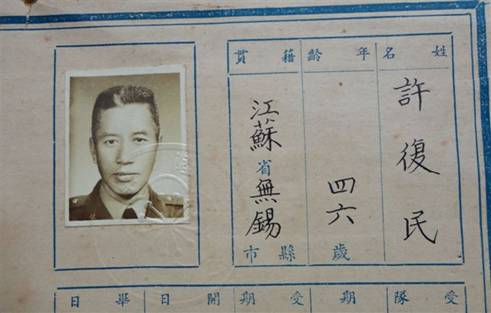 姓名
許復民
年齡
四六歲
籍貫
江蘇省無錫縣市
受隊期受期開日畢日